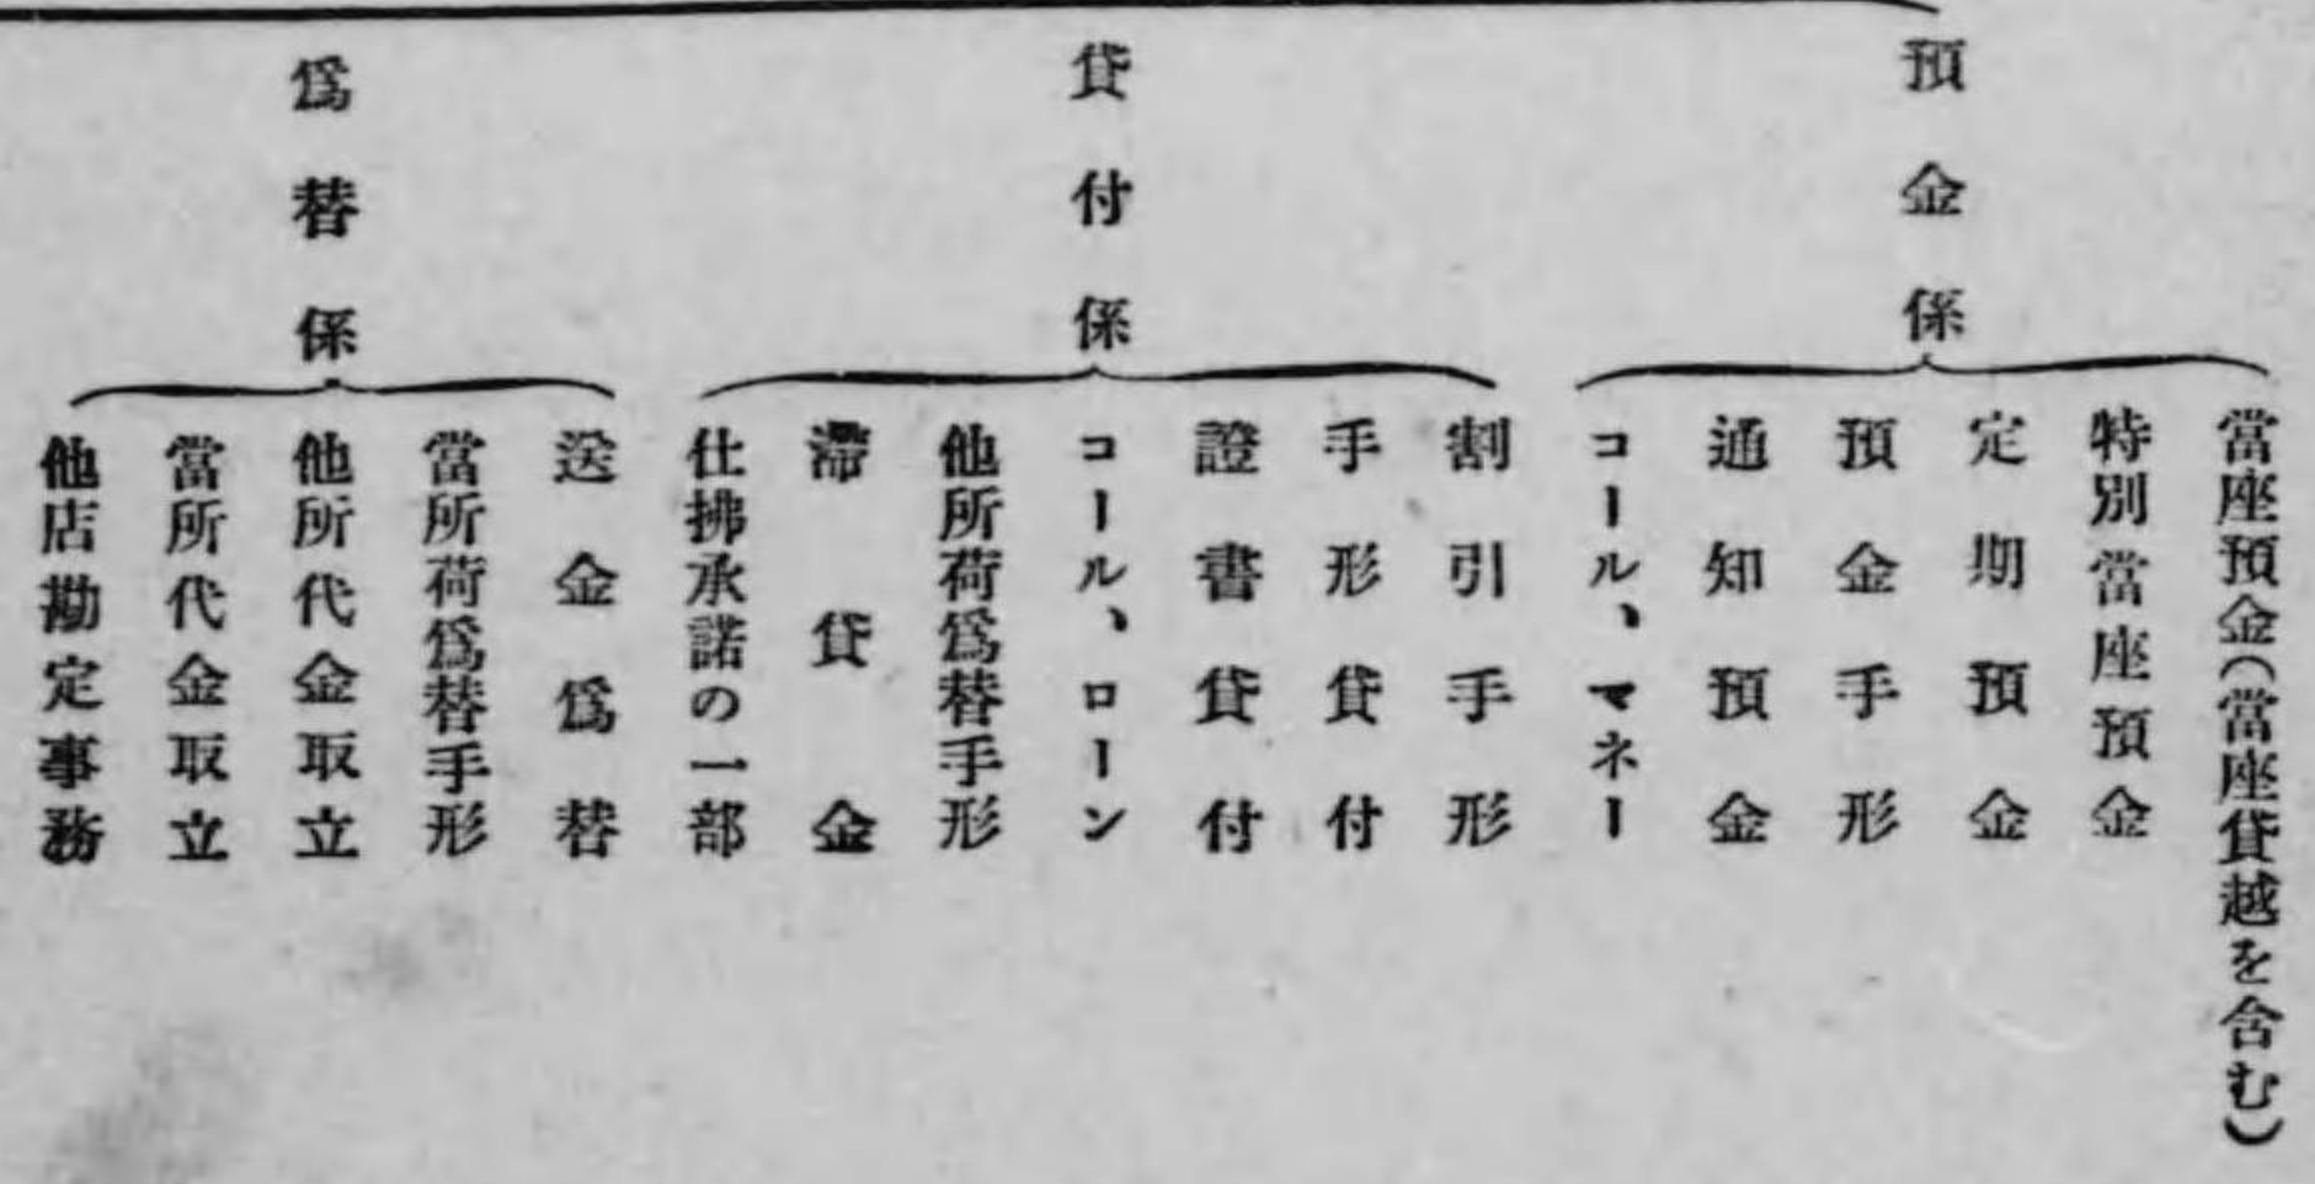 預金係
當座預金(當座貸越を含む)
特別當座預金
定期預金
預金手形
通知預金
コール、マネー
貸付係
割引手形
手形貸付
證書貸付
コール、ローン
他所荷爲替手形
滯貸金
仕拂承諾の一部
爲替係
送金爲替
當所荷爲替手形
他所代金取立
當所代金取立
他店勘定事務